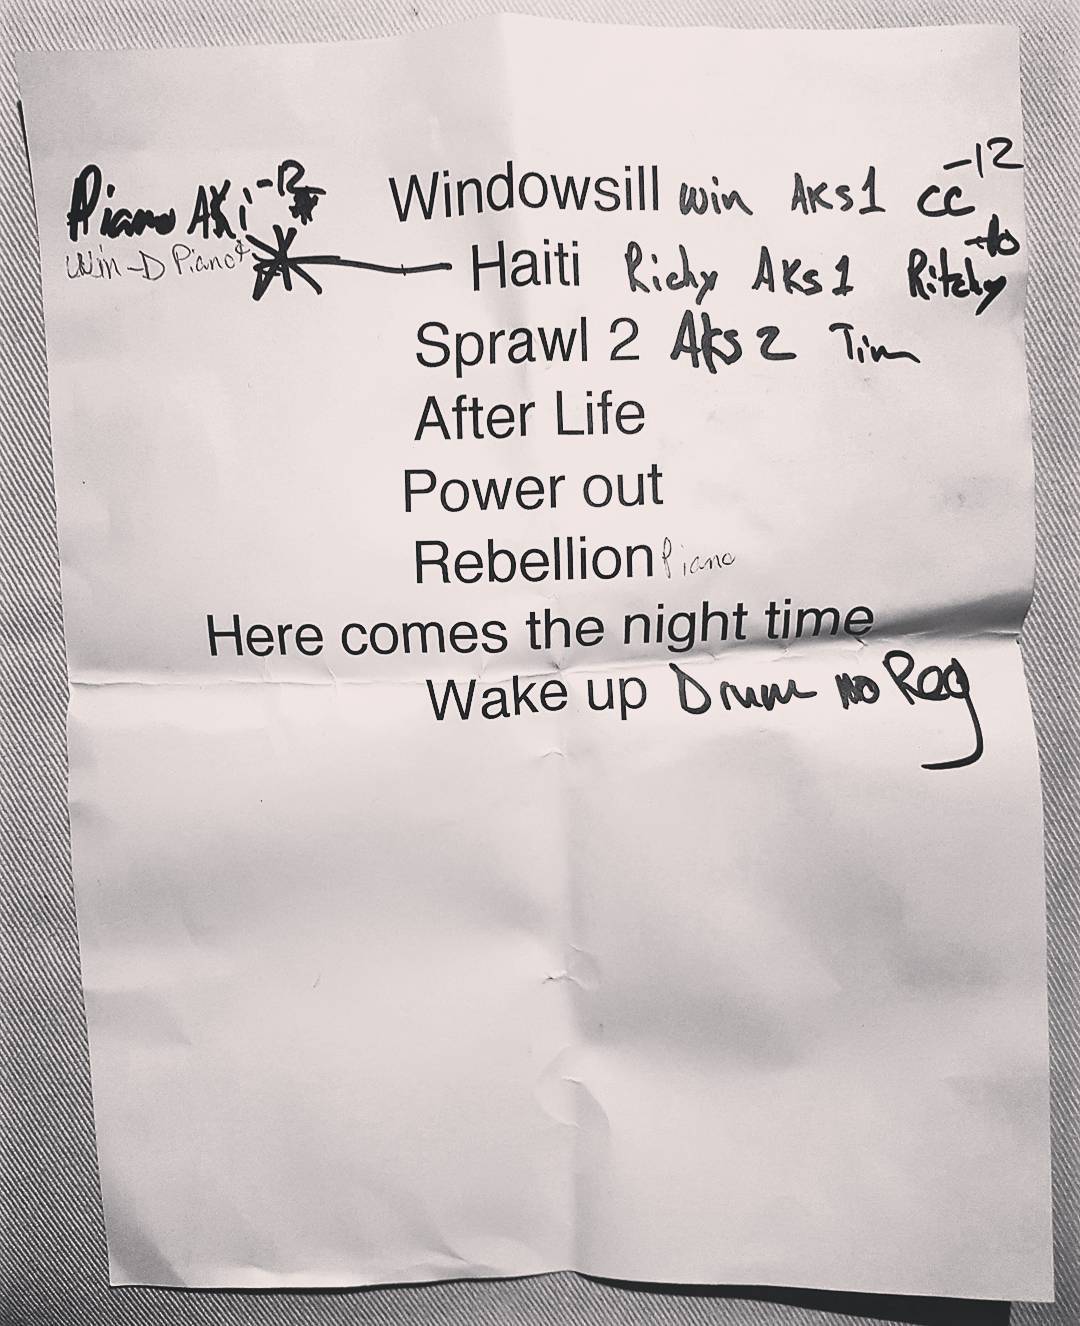 Piano AKi -12 Windowsill win AKS1 CC -12
Win-D Piano Haiti Richy AKS1 Ritchy -to
Sprawl 2 AKS 2 Tim
After Life
Power out
Rebellion Piano
Here comes the night time
Wake up Drum no Reg